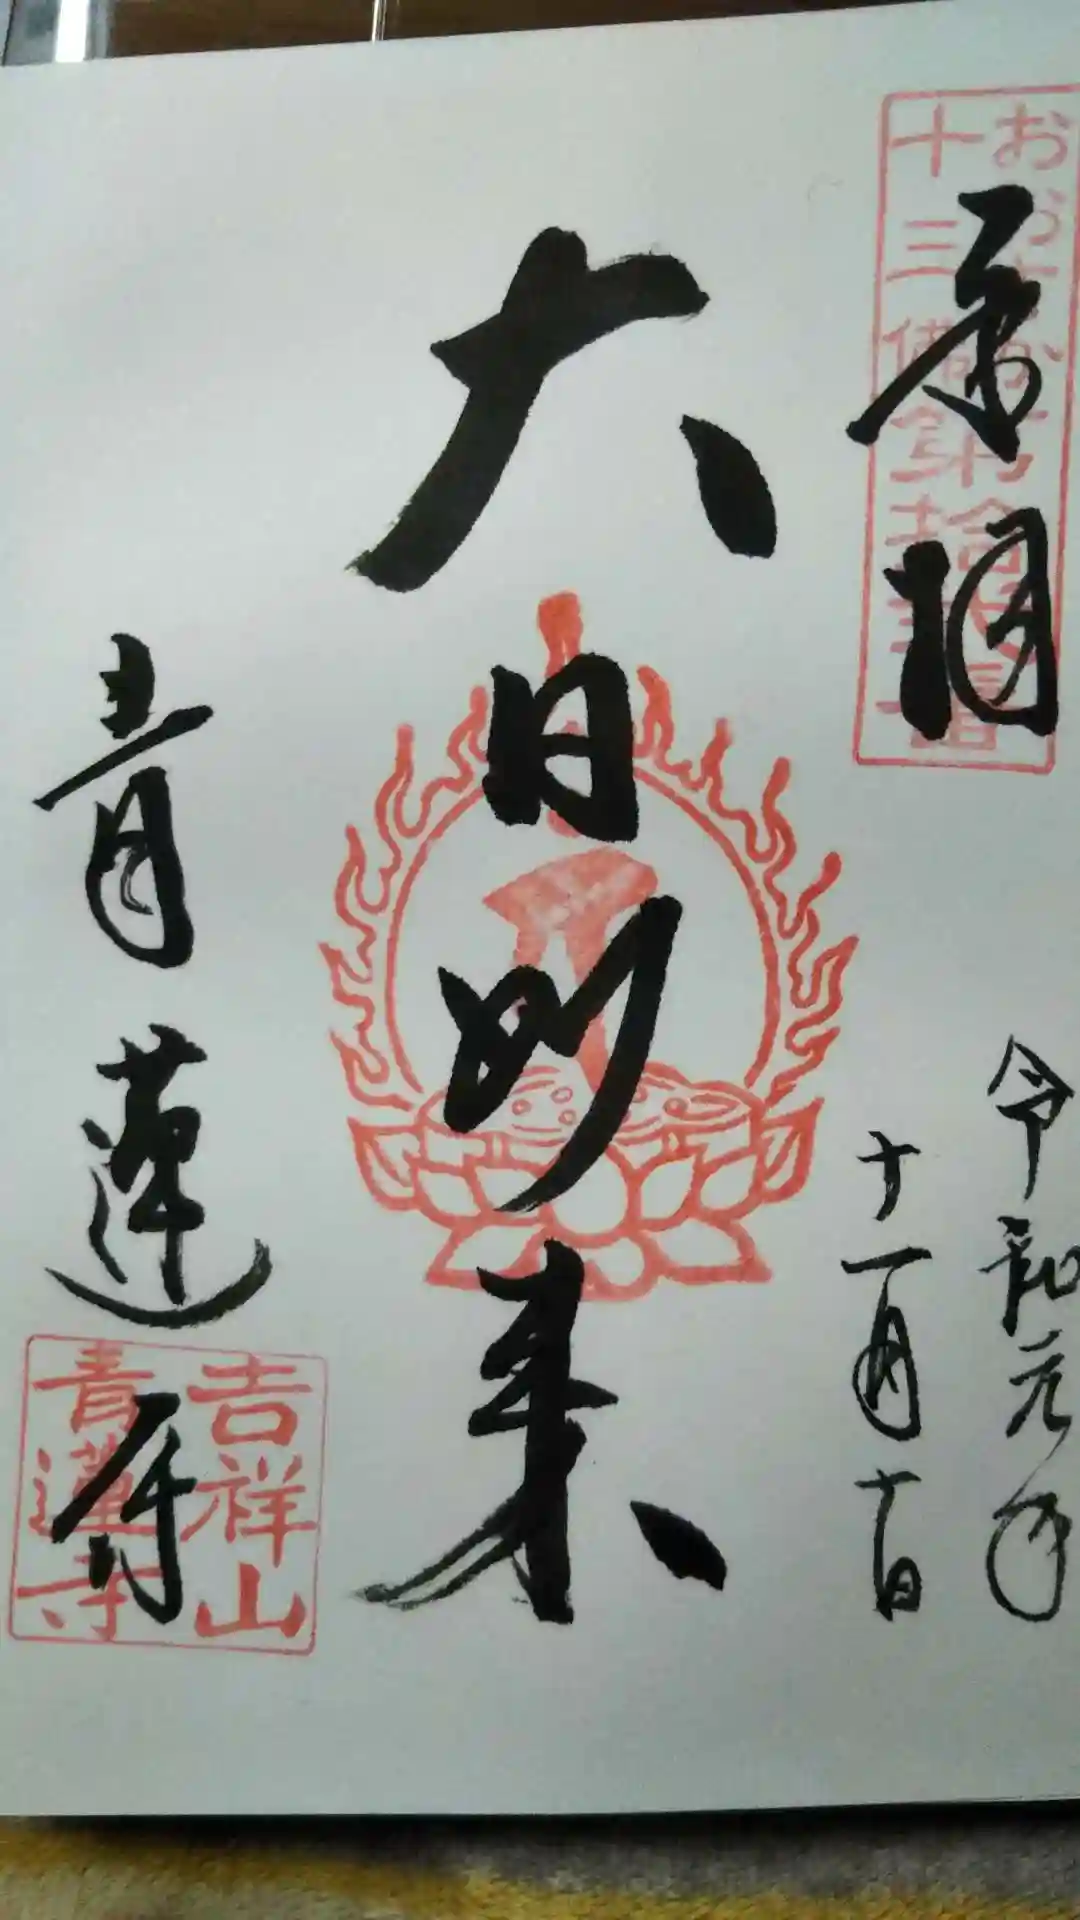 奉拝
令和元年
十一月十日
大日如来
青蓮寺
吉祥山
青蓮寺
十三佛第拾弐番